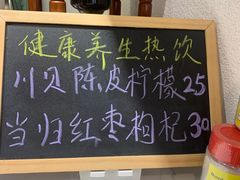 健康养生热饮
川贝陈皮柠檬25
当归红枣枸杞30